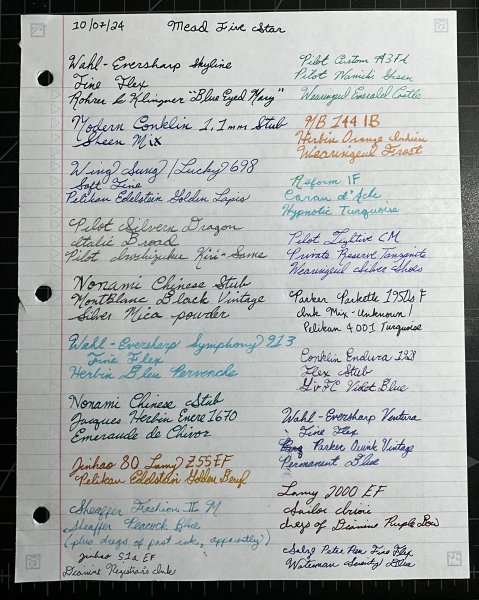 10/07/24 Mead Five Star
Wahl-Eversharp Skyline
Fine Flex
Rohrer & Klingner "Blue Eyed Mary"
Modern Conklin 1.1mm Stub
Sheen Mix
Wing Sung/Lucky 698
Soft Fine
Pelikan Edelstein Golden Lapis
Pilot Silvern Dragon
Italic Broad
Pilot Iroshizuku Kiri-Same
Nonami Chinese Stub
MontBlanc Black Vintage
Silver Mica powder
Wahl-Eversharp Symphony 913
Fine Flex
Herbin Bleu Pervenche
Nonami Chinese Stub
Jacques Herbin Encre 1670
Emeraude de Chivor
Jinhao 80 Lamy Z55 EF
Pelikan Edelstein Golden Beryl
Sheaffer Fashion II M
Sheaffer Peacock Blue
(plus dregs of past ink, apparently)
Jinhao 51a EF
Diamine Registrars Ink
Pilot Custom
Pilot
Wearingeul Emerald Castle
M/B 144 IB
Herbin Orange Indien
Wearingeul Frost
Reform 1F
Caran d'Ache
Hypnotic Turquoise
Pilot CM
Private Reserve Tanzanite
Wearingeul Silver Shoes
Parker Parkette 1950s F
Ink Mix-Unknown/
Pelikan 4001 Turquoise
Conklin Endura
Flex Stub
GvFC Violet Blue
Wahl-Eversharp Ventura
Fine Flex
Parker Quink Vintage
Permanent Blue
Lamy 2000 EF
Sailor
dregs of Diamine Purple Dow
Salz Peter Pan Fine Flex
Waterman Serenity Blue